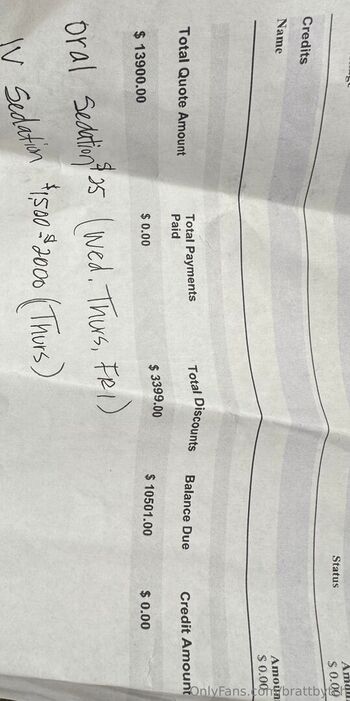 Amount
Status
$ 0.00
Credits
Name
Amount
$ 0.00
Total Quote Amount Total Payments Paid Total Discounts Balance Due Credit Amount
$ 13900.00 $ 0.00 $ 3399.00 $ 10501.00 $ 0.00
oral Sedation $25 (Wed. Thurs, FRI)
IV Sedation $1,500-$2000 (Thurs)